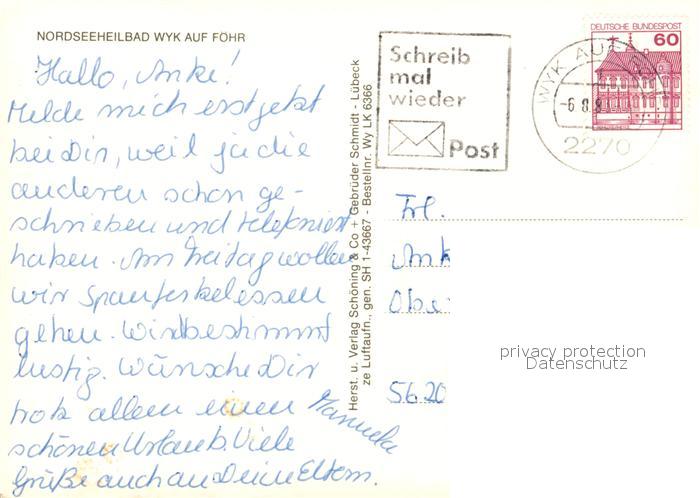 NORDSEEHEILBAD WYK AUF FÖHR
Hallo, Anke!
Melde mich erst jetzt
bei Dir, weil ja die
anderen schon ge-
schrieben und telefoniert
haben. Am Freitag wollen
wir Spanferkelessen
gehen. Wird bestimmt
lustig. Wünsche Dir
trotz allem einen
schönen Urlaub. Viele
Grüße auch an Deine Eltern.
Herst. u. Verlag Schöning & Co + Gebrüder Schmidt - Lübeck
ze Luftaufn., gen. SH 1-43667 - Bestellnr. Wy LK 6366
Schreib
mal
wieder
Post
WYK AUF
-6.8.8
2270
DEUTSCHE BUNDESPOST
60
Frl.
Ank
Obe
5620
privacy protection
Datenschutz